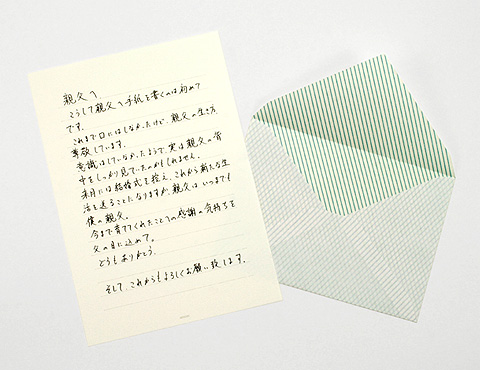 親父へ
こうして親父へ手紙を書くのは初めて
です。
これまで口にはしなかったけど、親父の生き方
尊敬しています。
意識はしていなかったようで、実は親父の背
中をしっかり見ていたのかもしれません。
来月には結婚式を控え、これから新たな生
活を送ることになりますが、親父はいつまでも
僕の親父。
今まで育ててくれたことへの感謝の気持ちを
父の日に込めて。
どうもありがとう。
そして、これからもよろしくお願い致します。